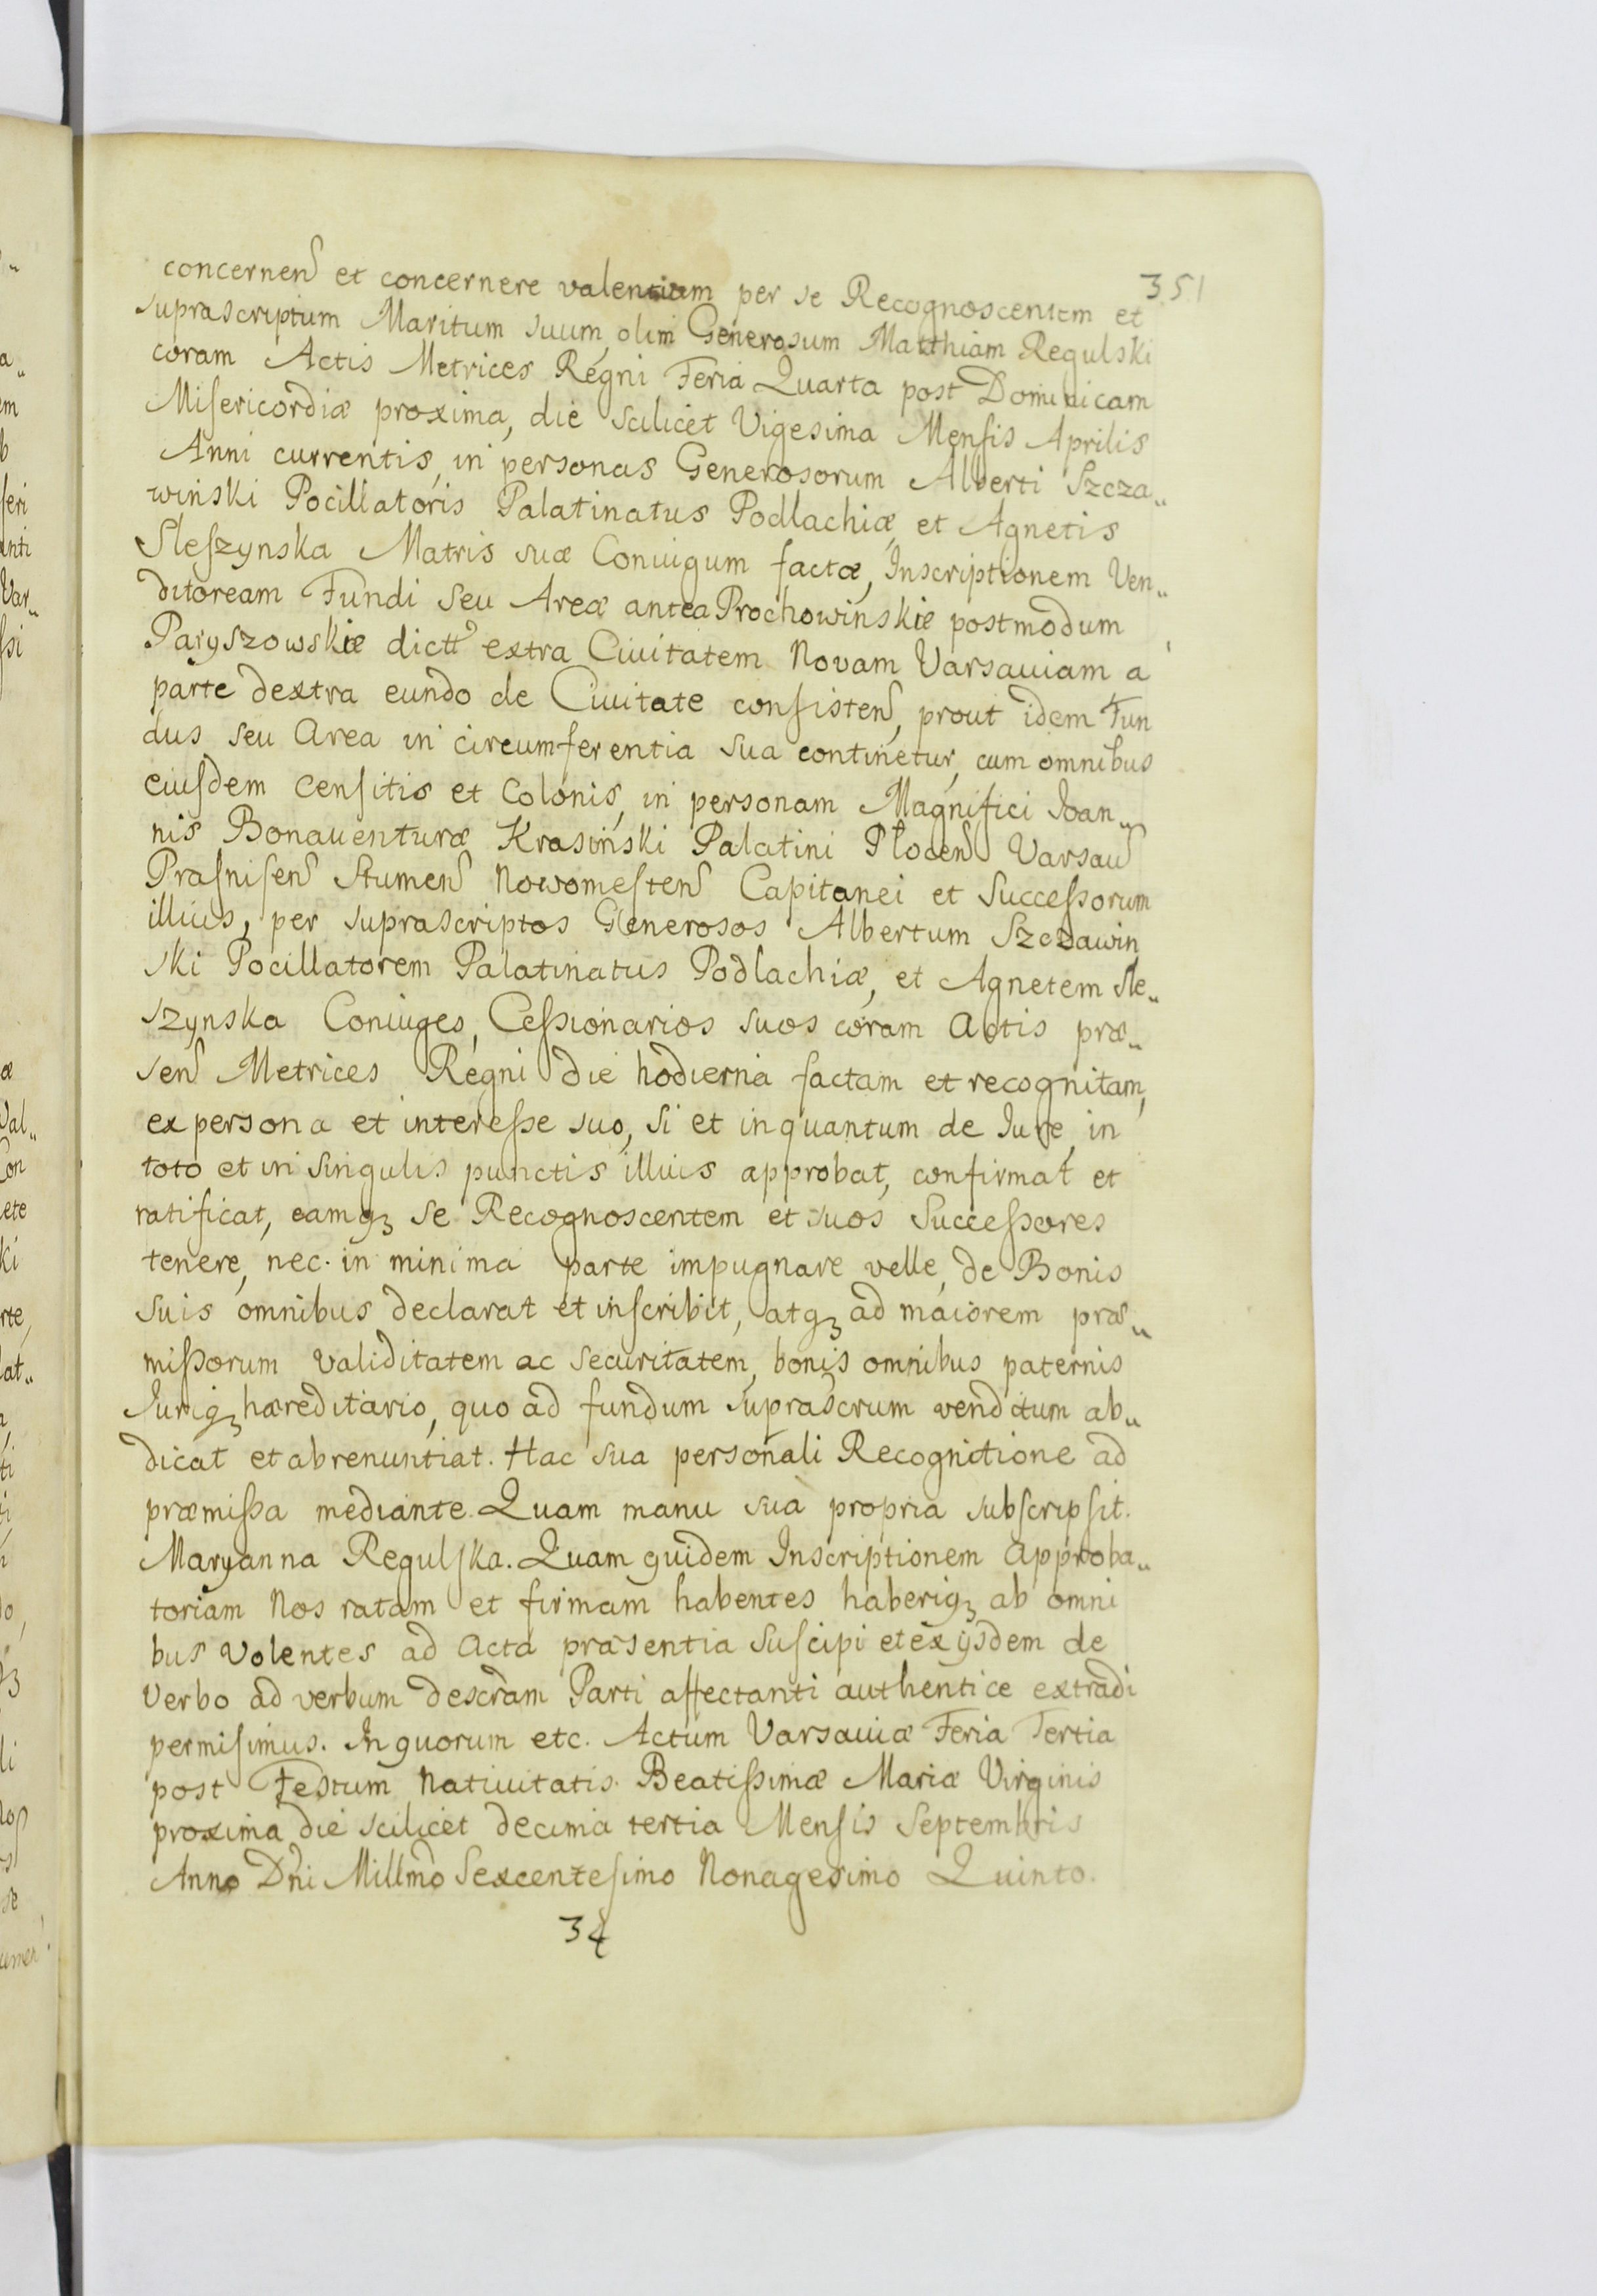 351
concernen et concernere valentium per se Recognoscentem et
suprascriptum Maritum suum, olim Generosum Matthiam Regulski
coram Actis Metrices Regni Feria Quarta post Dominicam
Misericordiæ proxima, die scilicet Vigesima Mensis Aprilis
Anni currentis, in personas Generosorum Alberti Szcza„
wiński Pocillatoris Palatinatus Podlachiæ, et Agnetis
Sleszynska Matris suæ Coniugum factæ, Inscriptionem Ven„
ditoream Fundi seu Areæ antea Prochowinskiæ postmodum
Paryszowskiæ dictt extra Ciuitatem Novam Varsauiam a
parte dextra eundo de Ciuitate consisten, prout idem Fun
dus seu Area in circumferentia sua continetur, cum omnibus
eiusdem Censitis et Colonis, in personam Magnifici Ioan„
nis Bonauenturæ Krasiński Palatini Płocen Varsau
Prasnisen Stumen Nowomesten Capitanei et Successorum
illius, per suprascriptos Generosos Albertum Szczawin
ski Pocillatorem Palatinatus Podlachiæ, et Agnetem Sle„
szynska Coniuges, Cessionarios suos coram Actis præ„
sen Metrices Regni die hodierna factam et recognitam,
ex persona et interesse suo, si et inquantum de Iure, in
toto et in singulis punctis illius approbat, confirmat et
ratificat, eamqꝫ se Recognoscentem et suos Successores
tenere, nec in minima parte impugnare velle, de Bonis
suis omnibus declarat et inscribit, atqꝫ ad maiorem præ„
missorum validitatem ac securitatem, bonis omnibus paternis
Iuriqꝫ hæreditario, quo ad fundum suprascrum venditum ab„
dicat et abrenuntiat. Hac sua personali Recognitione ad
præmissa mediante. Quam manu sua propria subscripsit.
Maryanna Regulska. Quam quidem Inscriptionem Approba„
toriam Nos ratam et firmam habentes haberiqꝫ ab omni
bus Volentes ad Acta præsentia suscipi et ex ijsdem de
Verbo ad verbum descram Parti affectanti authentice extradi
permisimus. In quorum etc. Actum Varsauiæ Feria Tertia
post Festum Natiuitatis Beatissimæ Mariæ Virginis
proxima die scilicet decima tertia Mensis Septembris
Anno Dni Millmo Sexcentesimo Nonagesimo Quinto.